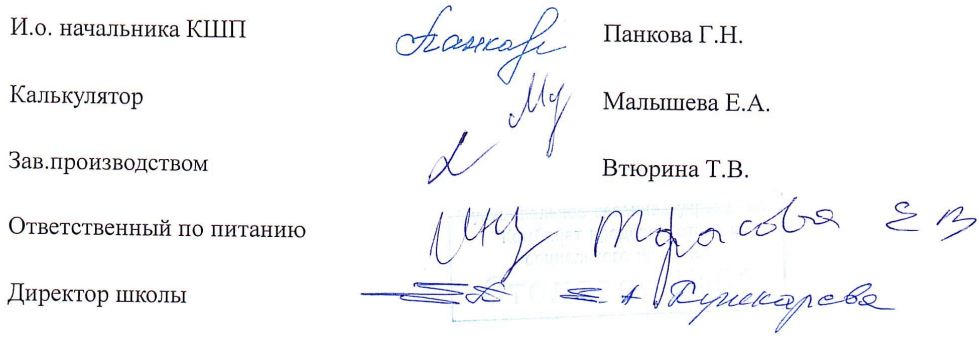 И.о. начальника КШП Панкова Г.Н.
Калькулятор Малышева Е.А.
Зав.производством Втюрина Т.В.
Ответственный по питанию Тарасова Е В
Директор школы Е А Пушкарева